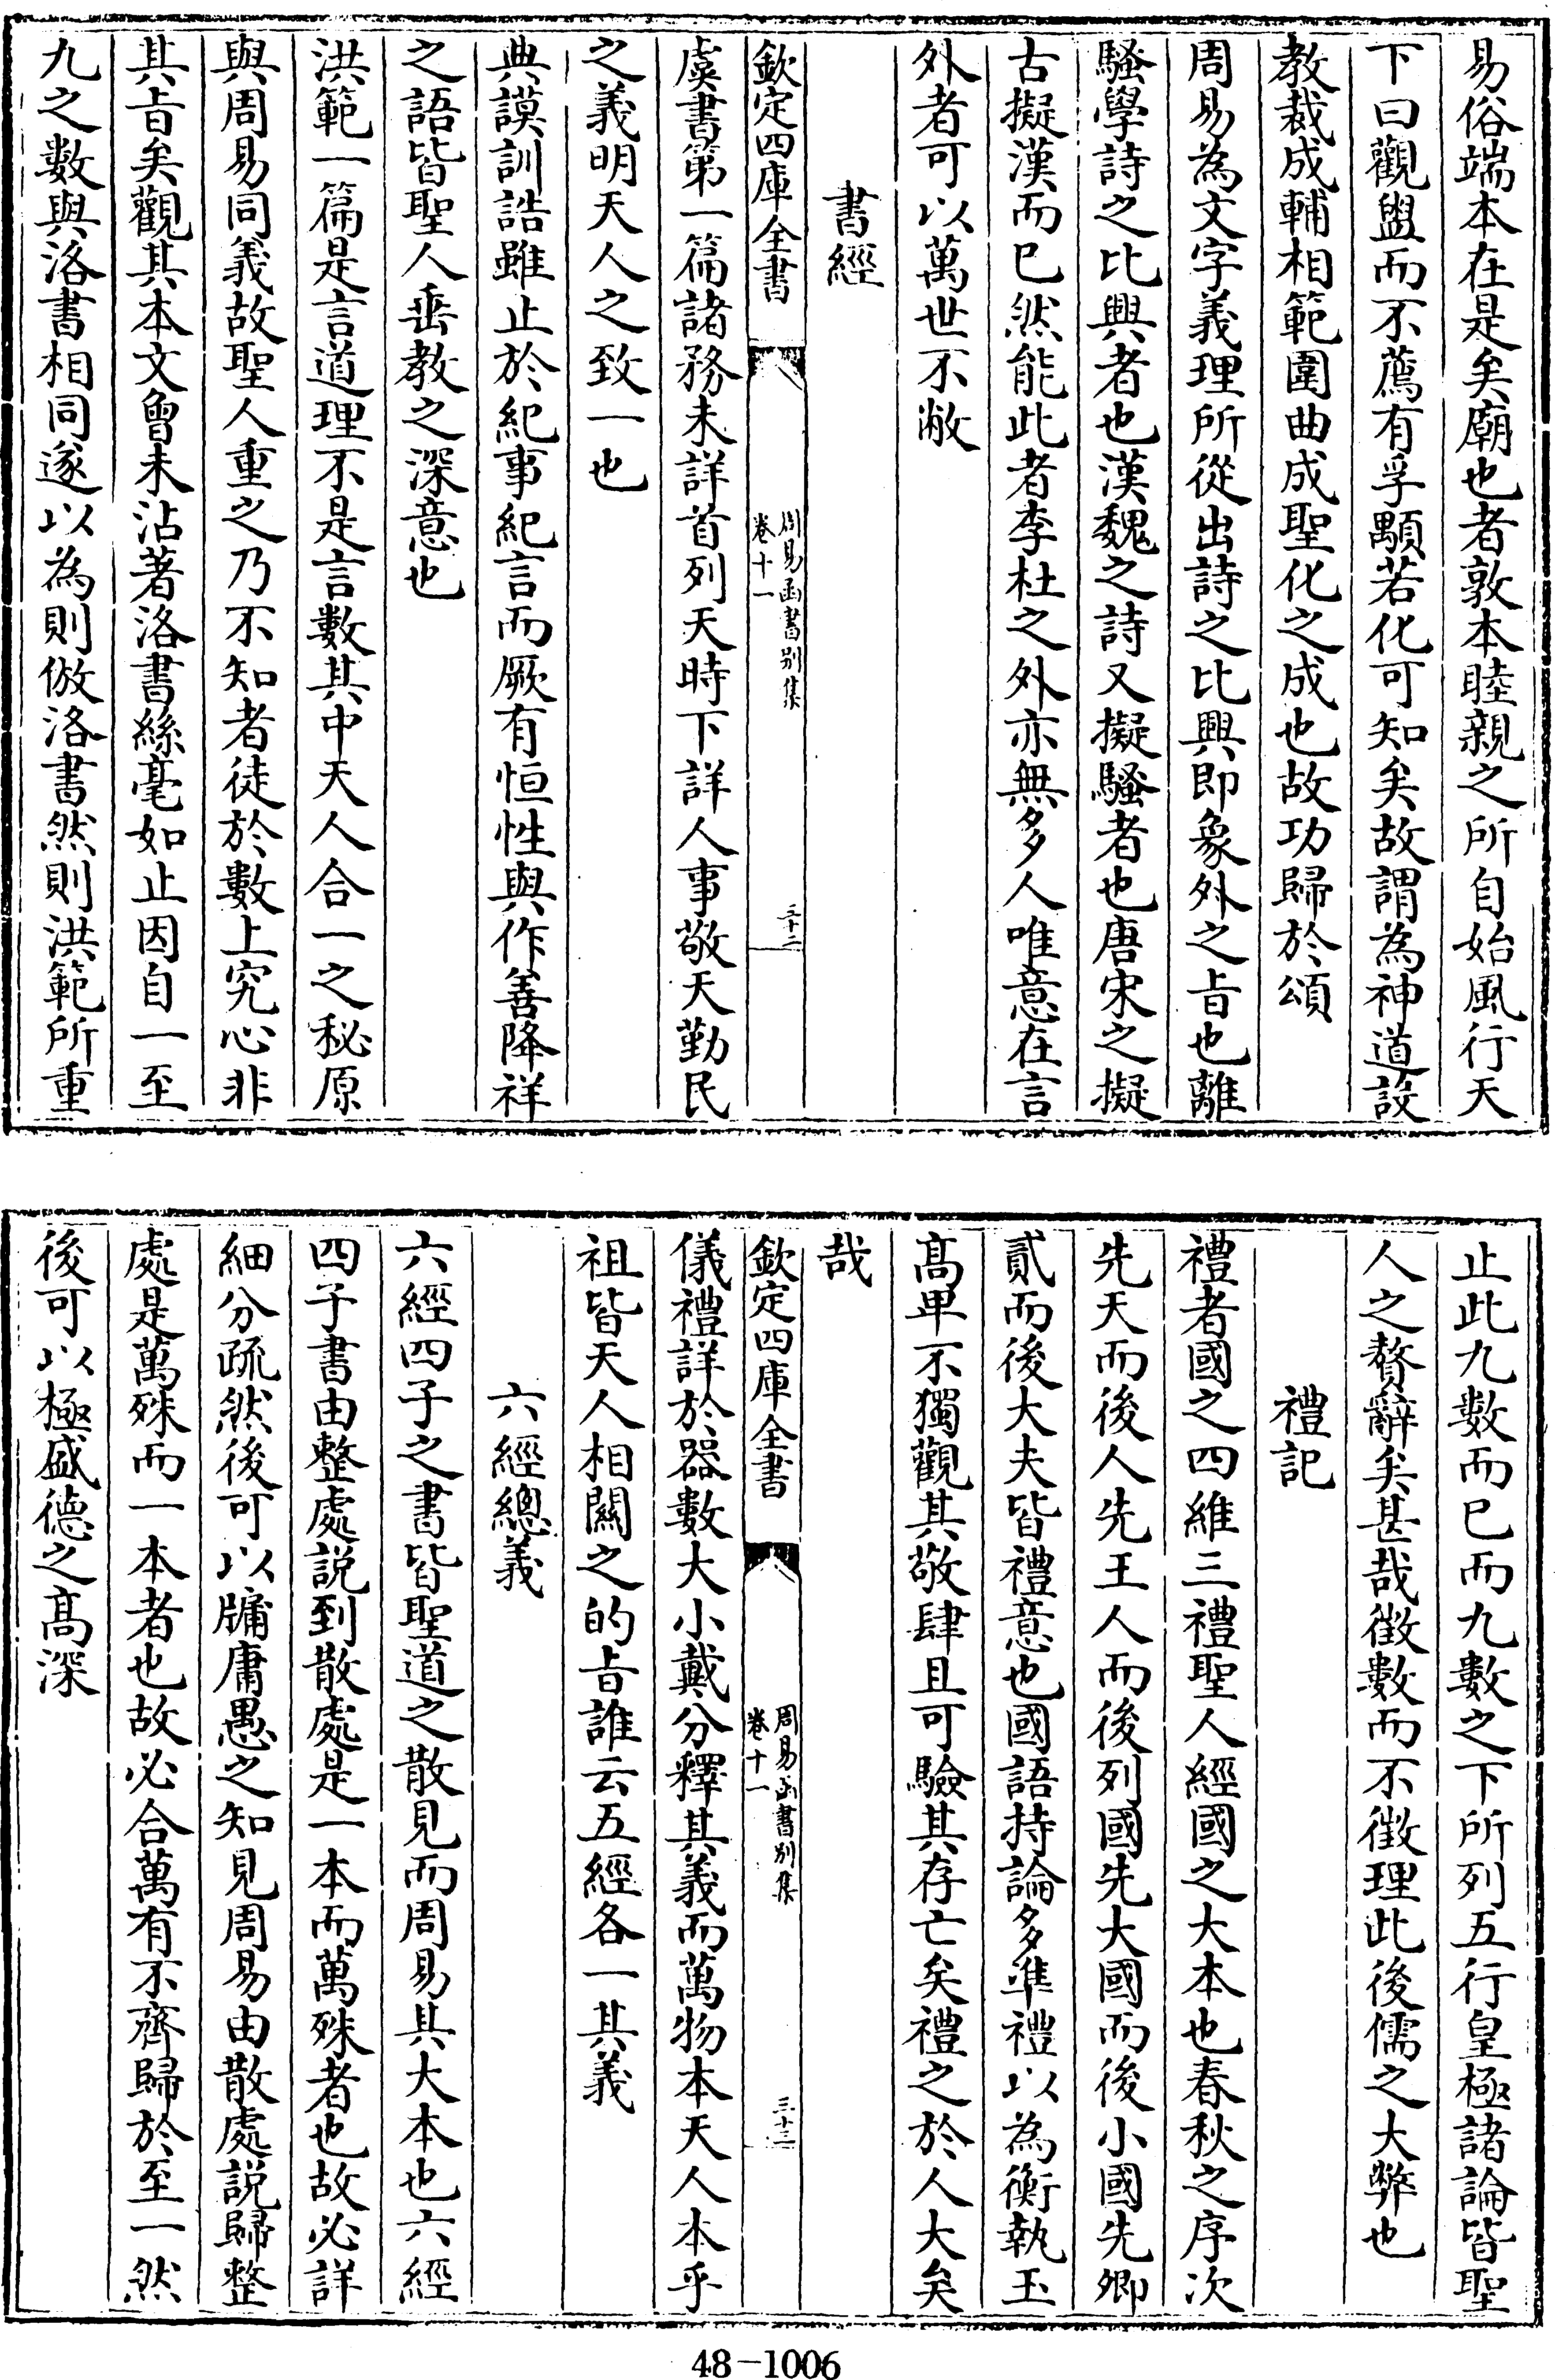 易俗端本在是矣廟也者敦本睦親之所自始風行天
下曰觀盥而不薦有孚顒若化可知矣故謂為神道設
教裁成輔相範圍曲成聖化之成也故功歸於頌
周易為文字義理所從出詩之比興即象外之㫖也離
騷學詩之比興者也漢魏之詩又擬騷者也唐宋之擬
古擬漢而已然能此者李杜之外亦無多人唯意在言
外者可以萬世不敝
書經
欽定四庫全書
周易函書别集
卷十一
三十二
虞書第一篇諸務未詳首列天時下詳人事敬天勤民
之義明天人之致一也
典謨訓誥雖止於紀事紀言而厥有恒性與作善降祥
之語皆聖人垂教之深意也
洪範一篇是言道理不是言數其中天人合一之秘原
與周易同義故聖人重之乃不知者徒於數上究心非
其㫖矣觀其本文曾未沾著洛書絲毫如止因自一至
九之數與洛書相同遂以為則倣洛書然則洪範所重
止此九數而已而九數之下所列五行皇極諸論皆聖
人之贅辭矣甚哉徴數而不徴理此後儒之大弊也
禮記
禮者國之四維三禮聖人經國之大本也春秋之序次
先天而後人先王人而後列國先大國而後小國先卿
貳而後大夫皆禮意也國語持論多準禮以為衡執玉
髙卑不獨觀其敬肆且可驗其存亡矣禮之於人大矣
哉
欽定四庫全書
周易函書别集
卷十一
三十三
儀禮詳於器數大小戴分釋其義而萬物本天人本乎
祖皆天人相關之的㫖誰云五經各一其義
六經總義
六經四子之書皆聖道之散見而周易其大本也六經
四子書由整處説到散處是一本而萬殊者也故必詳
細分疏然後可以牖庸愚之知見周易由散處説歸整
處是萬殊而一本者也故必合萬有不齊歸於至一然
後可以極盛德之髙深
48-1006